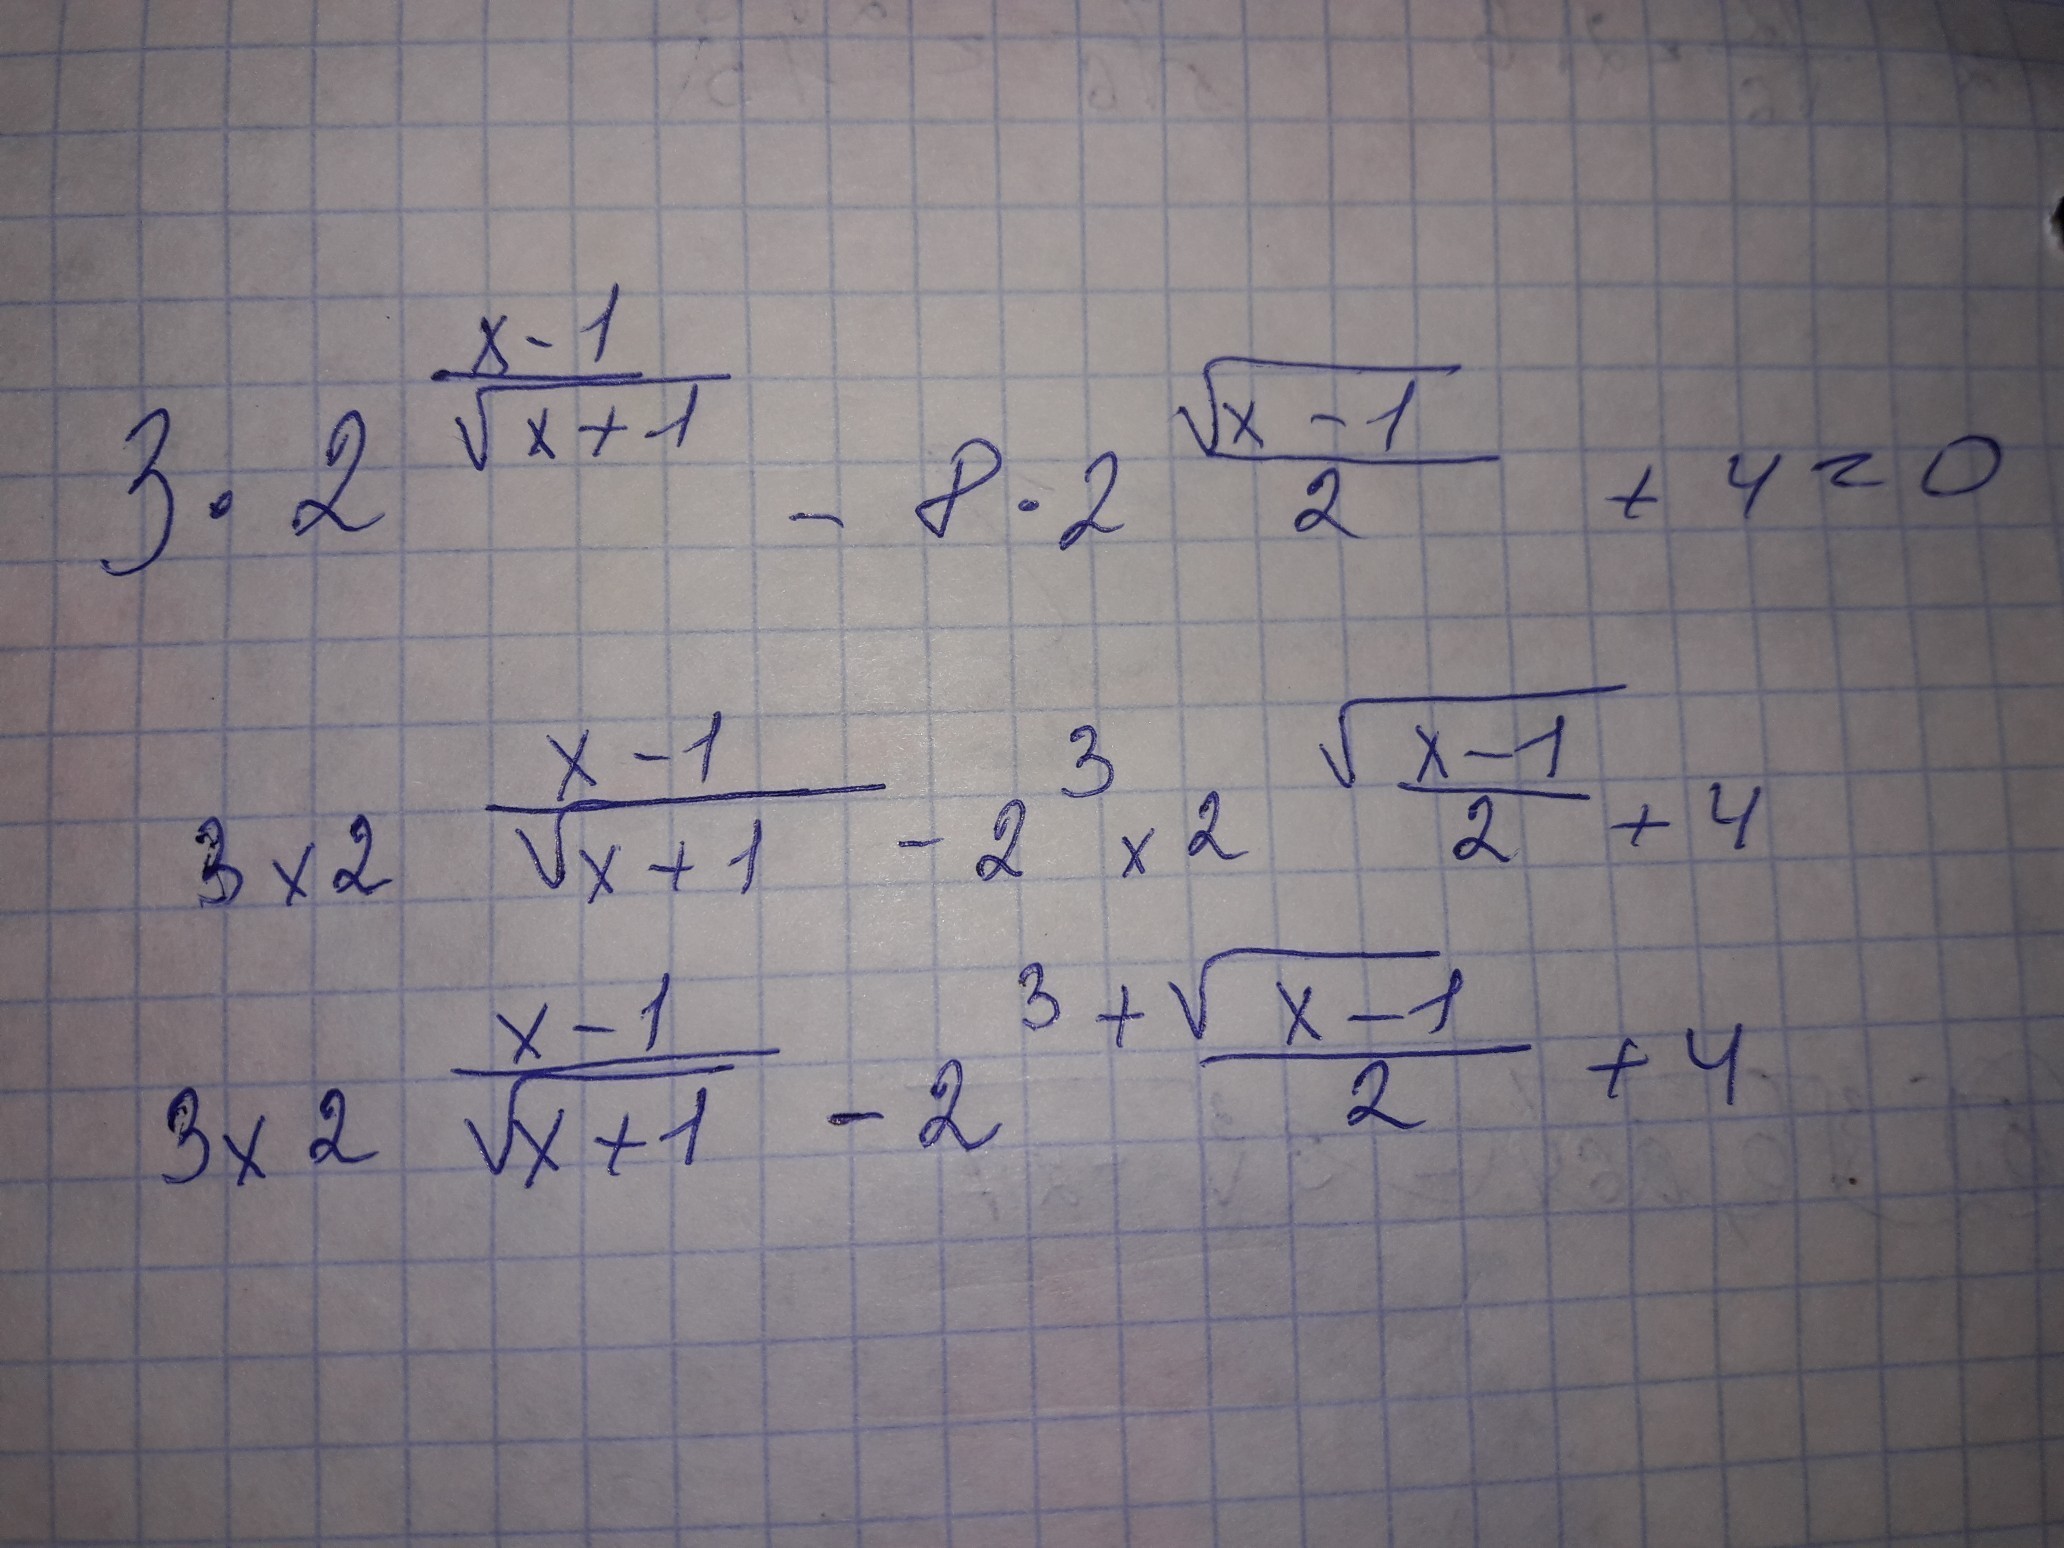 3 · 2^{\frac{x-1}{\sqrt{x+1}}} - 8 · 2^{\frac{\sqrt{x-1}}{2}} + 4 = 0
3 × 2^{\frac{x-1}{\sqrt{x+1}}} - 2^3 × 2^{\sqrt{\frac{x-1}{2}}} + 4
3 × 2^{\frac{x-1}{\sqrt{x+1}}} - 2^{3+\frac{\sqrt{x-1}}{2}} + 4